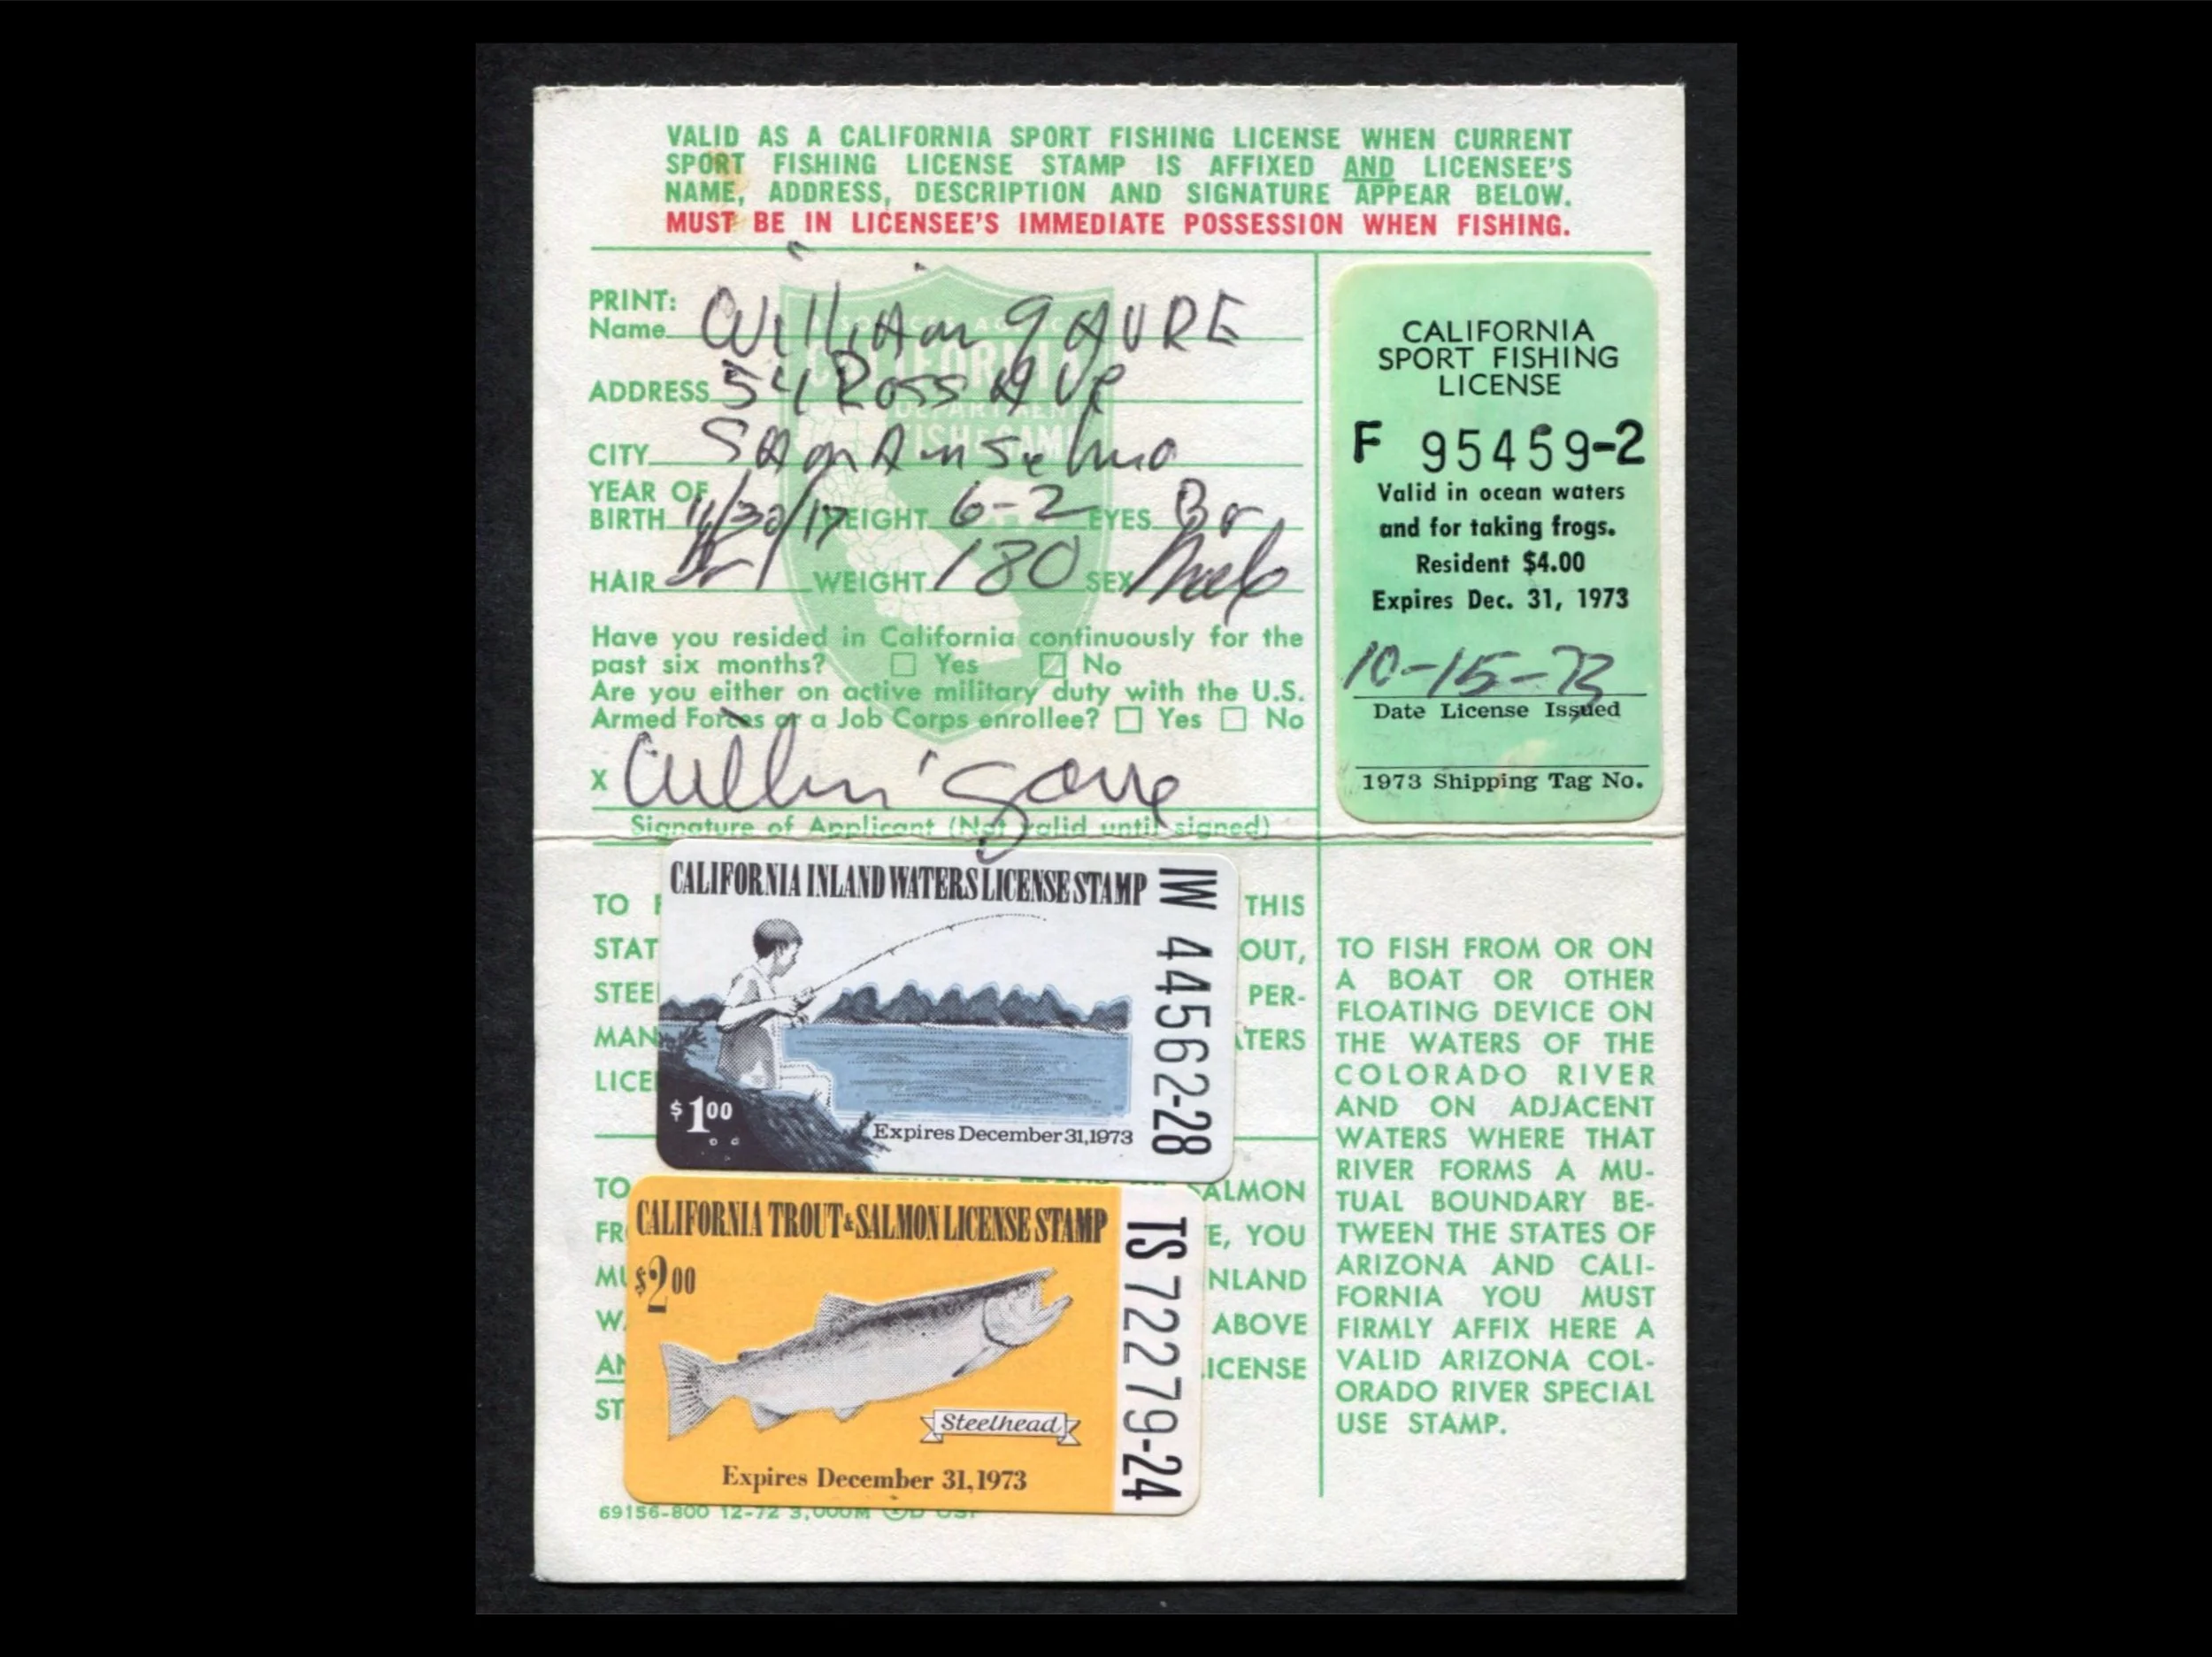 VALID AS A CALIFORNIA SPORT FISHING LICENSE WHEN CURRENT
SPORT FISHING LICENSE STAMP IS AFFIXED AND LICENSEE'S
NAME, ADDRESS, DESCRIPTION AND SIGNATURE APPEAR BELOW.
MUST BE IN LICENSEE'S IMMEDIATE POSSESSION WHEN FISHING.
PRINT:
Name William GAURE
ADDRESS 54 Ross AVe
CITY SAn Anselmo
YEAR OF
BIRTH 11/30/17 HEIGHT 6-2 EYES Br
HAIR Br WEIGHT 180 SEX Male
Have you resided in California continuously for the
past six months? Yes No
Are you either on active military duty with the U.S.
Armed Forces or a Job Corps enrollee? Yes No
X William Gaure
Signature of Applicant (Not valid until signed)
CALIFORNIA
DEPARTMENT
FISH & GAME
CALIFORNIA
SPORT FISHING
LICENSE
F 95459-2
Valid in ocean waters
and for taking frogs.
Resident $4.00
Expires Dec. 31, 1973
10-15-73
Date License Issued
1973 Shipping Tag No.
TO THIS
STAT OUT,
STEE PER-
MAN ATERS
LICE
CALIFORNIA INLAND WATERS LICENSE STAMP
$1.00
Expires December 31, 1973
IW 44562-28
TO SALMON
FR E, YOU
MU NLAND
WA ABOVE
AN LICENSE
ST
CALIFORNIA TROUT & SALMON LICENSE STAMP
$2.00
Steelhead
Expires December 31, 1973
TS 72279-24
69156-800 12-72 3,000M
TO FISH FROM OR ON
A BOAT OR OTHER
FLOATING DEVICE ON
THE WATERS OF THE
COLORADO RIVER
AND ON ADJACENT
WATERS WHERE THAT
RIVER FORMS A MU-
TUAL BOUNDARY BE-
TWEEN THE STATES OF
ARIZONA AND CALI-
FORNIA YOU MUST
FIRMLY AFFIX HERE A
VALID ARIZONA COL-
ORADO RIVER SPECIAL
USE STAMP.